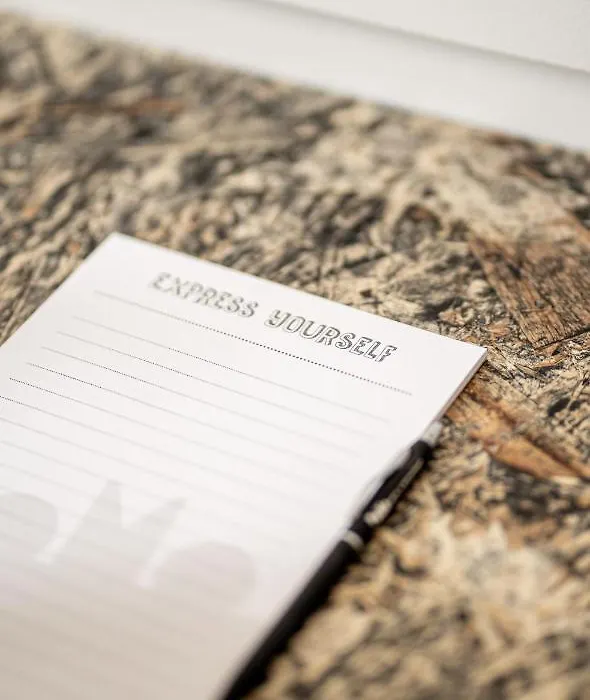 EXPRESS YOURSELF